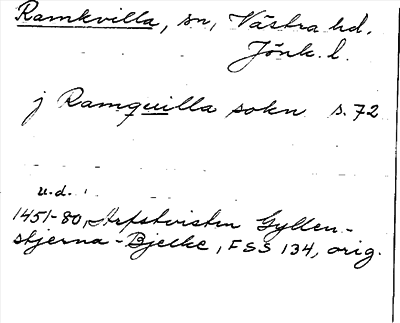 Ramkvilla, sn, Västra hd.
Jönk. l.
j Ramquilla sokn s. 72
u.d.
1451-80, Arfstvisten Gyllen-
stjerna - Bjelke, FSS 134, orig.